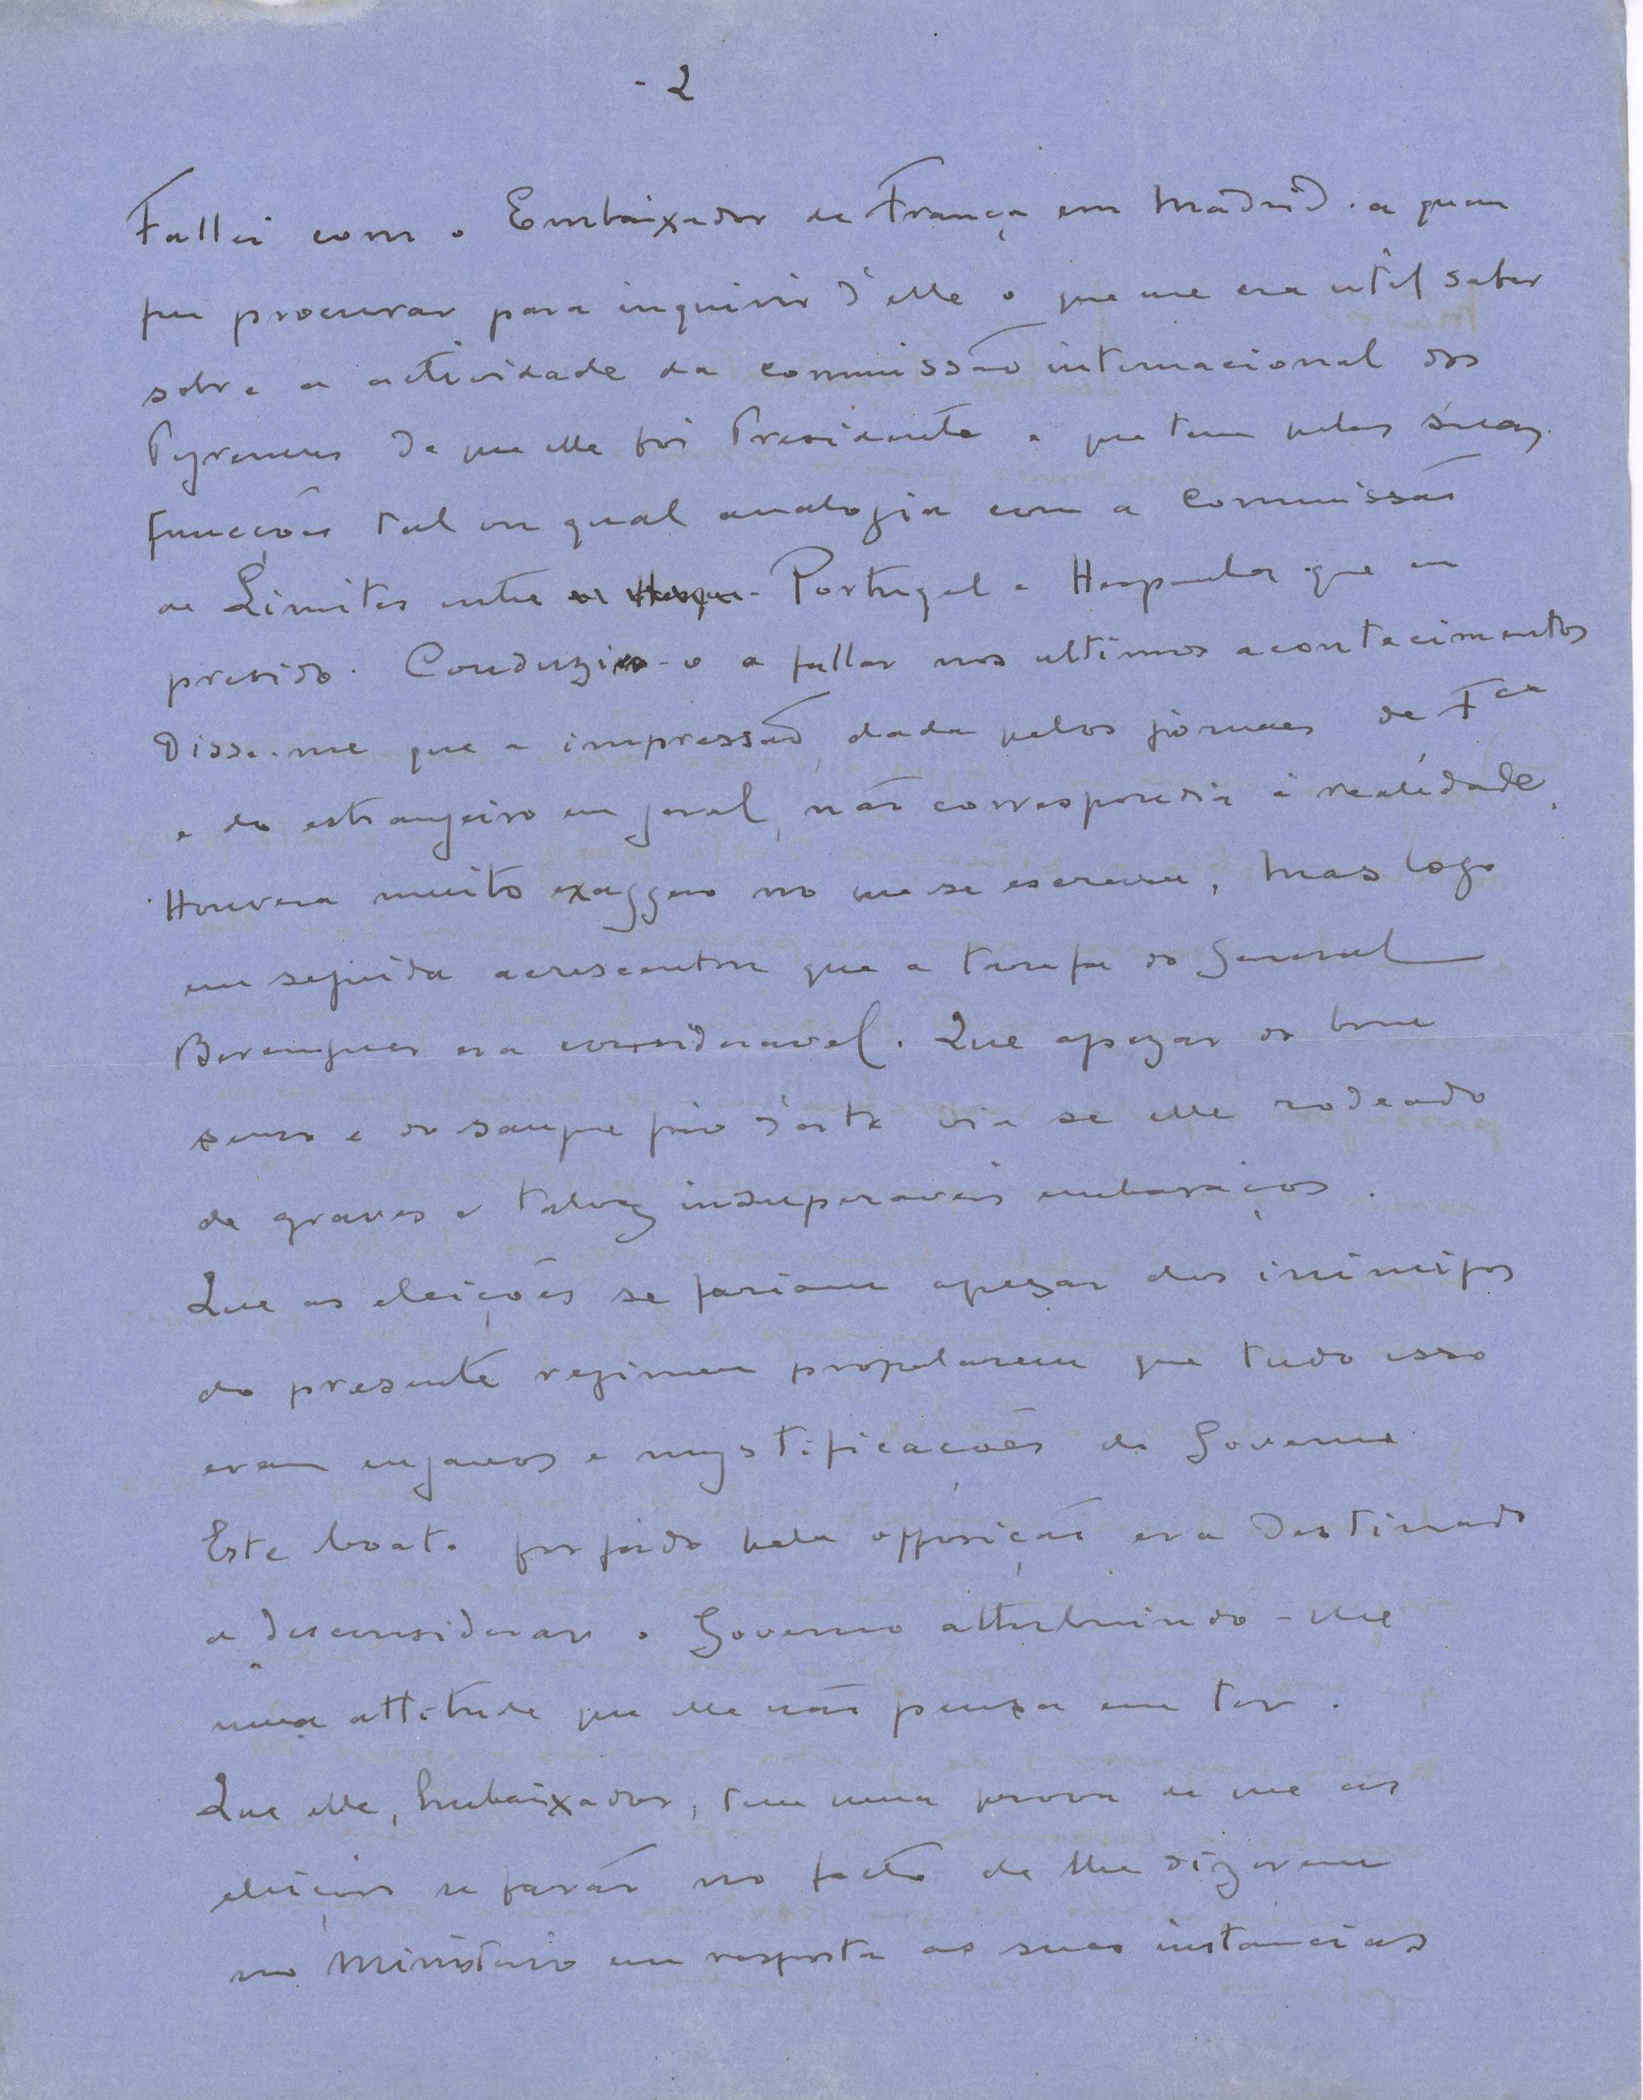 - 2
Fallei com o Embaixador de França em Madrid. a quem
fui procurar para inquirir d'elle o que me era util saber
sobre a actividade da commissão internacional dos
Pyreneus de que elle foi Presidente e que tem pelas suas
funcções tal ou qual analogia com a Commissão
de Limites entre Portugal e Hespanha que eu
presido. Conduzi-o a fallar nos ultimos acontecimentos
Disse-me que a impressão, dada pelos jornaes de Fca
e do estrangeiro em geral, não correspondia á realidade,
Houvera muito exaggero no que se escreveu, mas logo
em seguida acrescentou que a tarefa do General
Berenguer era consideravel. Que apezar do bom
senso e do sangue frio d'este via se elle rodeado
de graves e talvez insuperaveis embaraços.
Que as eleições se fariam apezar dos inimigos
do presente regimen propalarem que tudo isso
eram enganos e mystificações do Governo
Este boato forjado pela opposição era destinado
a desconsiderar o Governo attribuindo-lhe
uma attitude que elle não pensa em ter.
Que elle, Embaixador, tem uma prova de que as
eleições se farão no facto de lhe dizerem
no Ministerio em resposta ás suas instancias